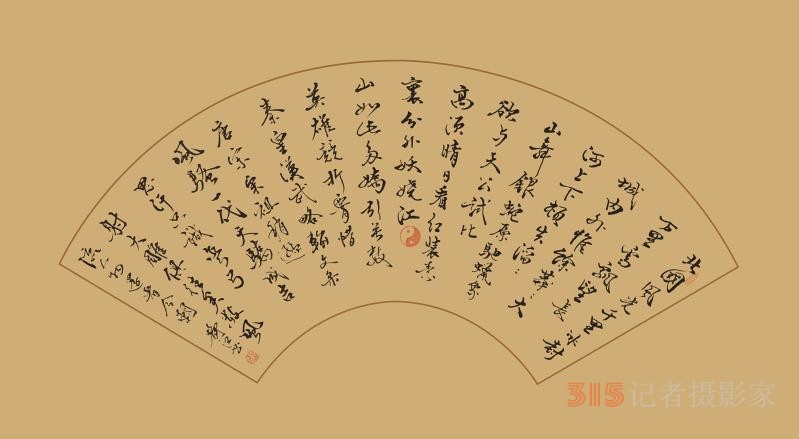 北國风光千里冰封
万里雪飘望长
城内外惟餘莽莽大
河上下頓失滔滔
山舞銀蛇原馳蠟象
欲与天公試比
高須晴日看红裝素
裹分外妖娆江
山如此多嬌引无數
英雄競折腰惜
秦皇漢武略輸文采
唐宗宋祖稍遜
風骚一代天驕成吉
思汗只識彎弓
射大雕俱往矣數風
流人物還看今朝
315记者摄影家